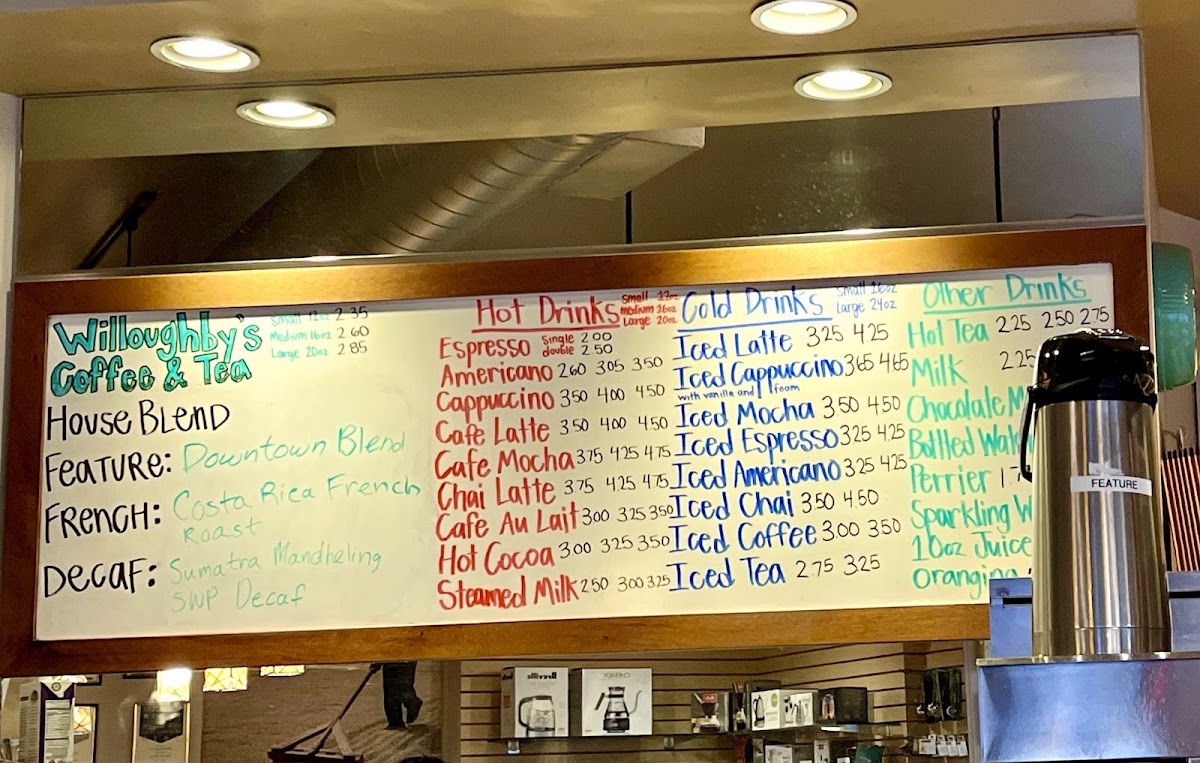 Willoughby's
Coffee & Tea
Small 12oz 2 35
Medium 16oz 2 60
Large 20oz 2 85
House Blend
Feature: Downtown Blend
French: Costa Rica French
Roast
Decaf: Sumatra Mandheling
SWP Decaf
Hot Drinks
Small 12oz
medium 16oz
Large 20oz
Espresso single 2 00
double 2 50
Americano 2 60 3 05 3 50
Cappuccino 3 50 4 00 4 50
Cafe Latte 3 50 4 00 4 50
Cafe Mocha 3 75 4 25 4 75
Chai Latte 3 75 4 25 4 75
Cafe Au Lait 3 00 3 25 3 50
Hot Cocoa 3 00 3 25 3 50
Steamed Milk 2 50 3 00 3 25
Cold Drinks
Small 16oz
Large 24oz
Iced Latte 3 25 4 25
Iced Cappuccino 3 65 4 65
with vanilla and foam
Iced Mocha 3 50 4 50
Iced Espresso 3 25 4 25
Iced Americano 3 25 4 25
Iced Chai 3 50 4 50
Iced Coffee 3 00 3 50
Iced Tea 2 75 3 25
Other Drinks
Hot Tea 2 25 2 50 2 75
Milk 2 25
Chocolate M
Bottled Wat
Perrier 1.7
Sparkling W
10oz Juice
Orangina
FEATURE
Breville
CHEMEX